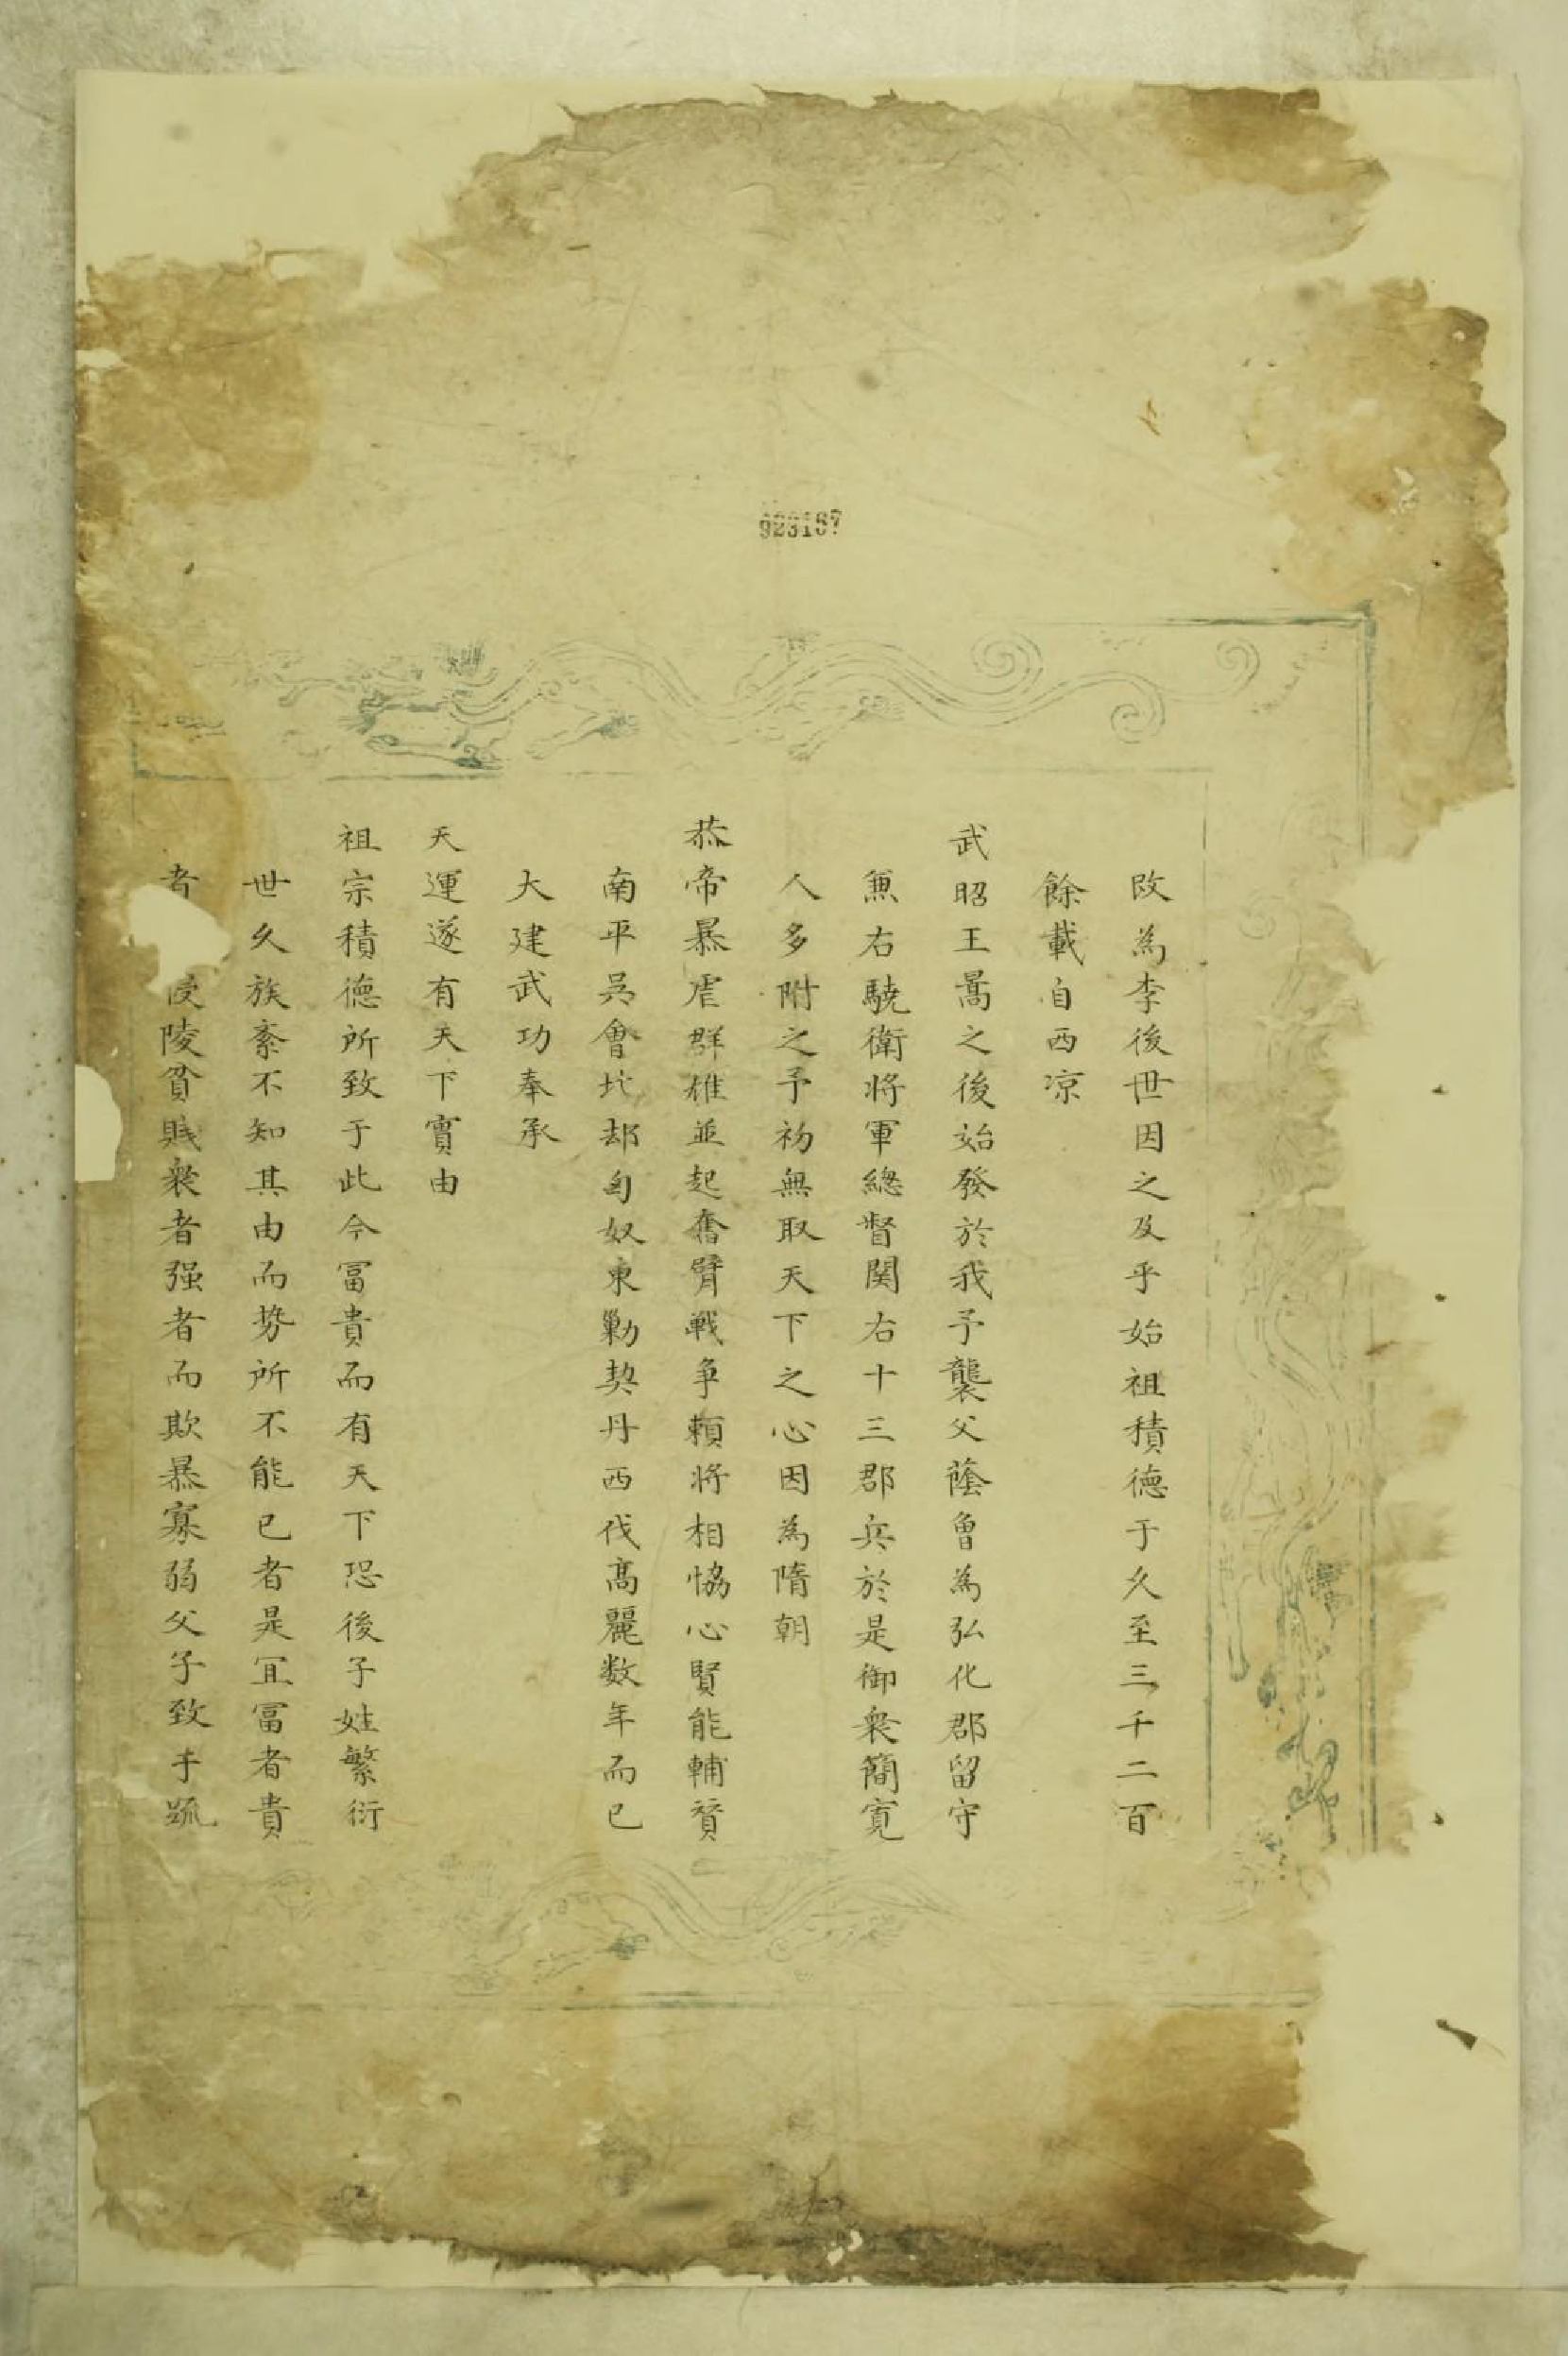 923187
改為李後世因之及乎始祖積德于久至三千二百
餘載自西凉
武昭王暠之後始發於我予襲父蔭曾為弘化郡留守
兼右驍衛將軍總督関右十三郡兵於是御衆簡寛
人多附之予初無取天下之心因為隋朝
恭帝暴虐群雄並起奮臂戦爭頼將相恊心賢能輔賛
南平吳會北却匈奴東勦契丹西伐髙麗数年而已
大建武功奉承
天運遂有天下實由
祖宗積德所致于此今冨貴而有天下恐後子姓繁衍
世久族紊不知其由而势所不能已者是冝冨者貴
者陵貧賎衆者强者而欺暴寡弱父子致手䟽